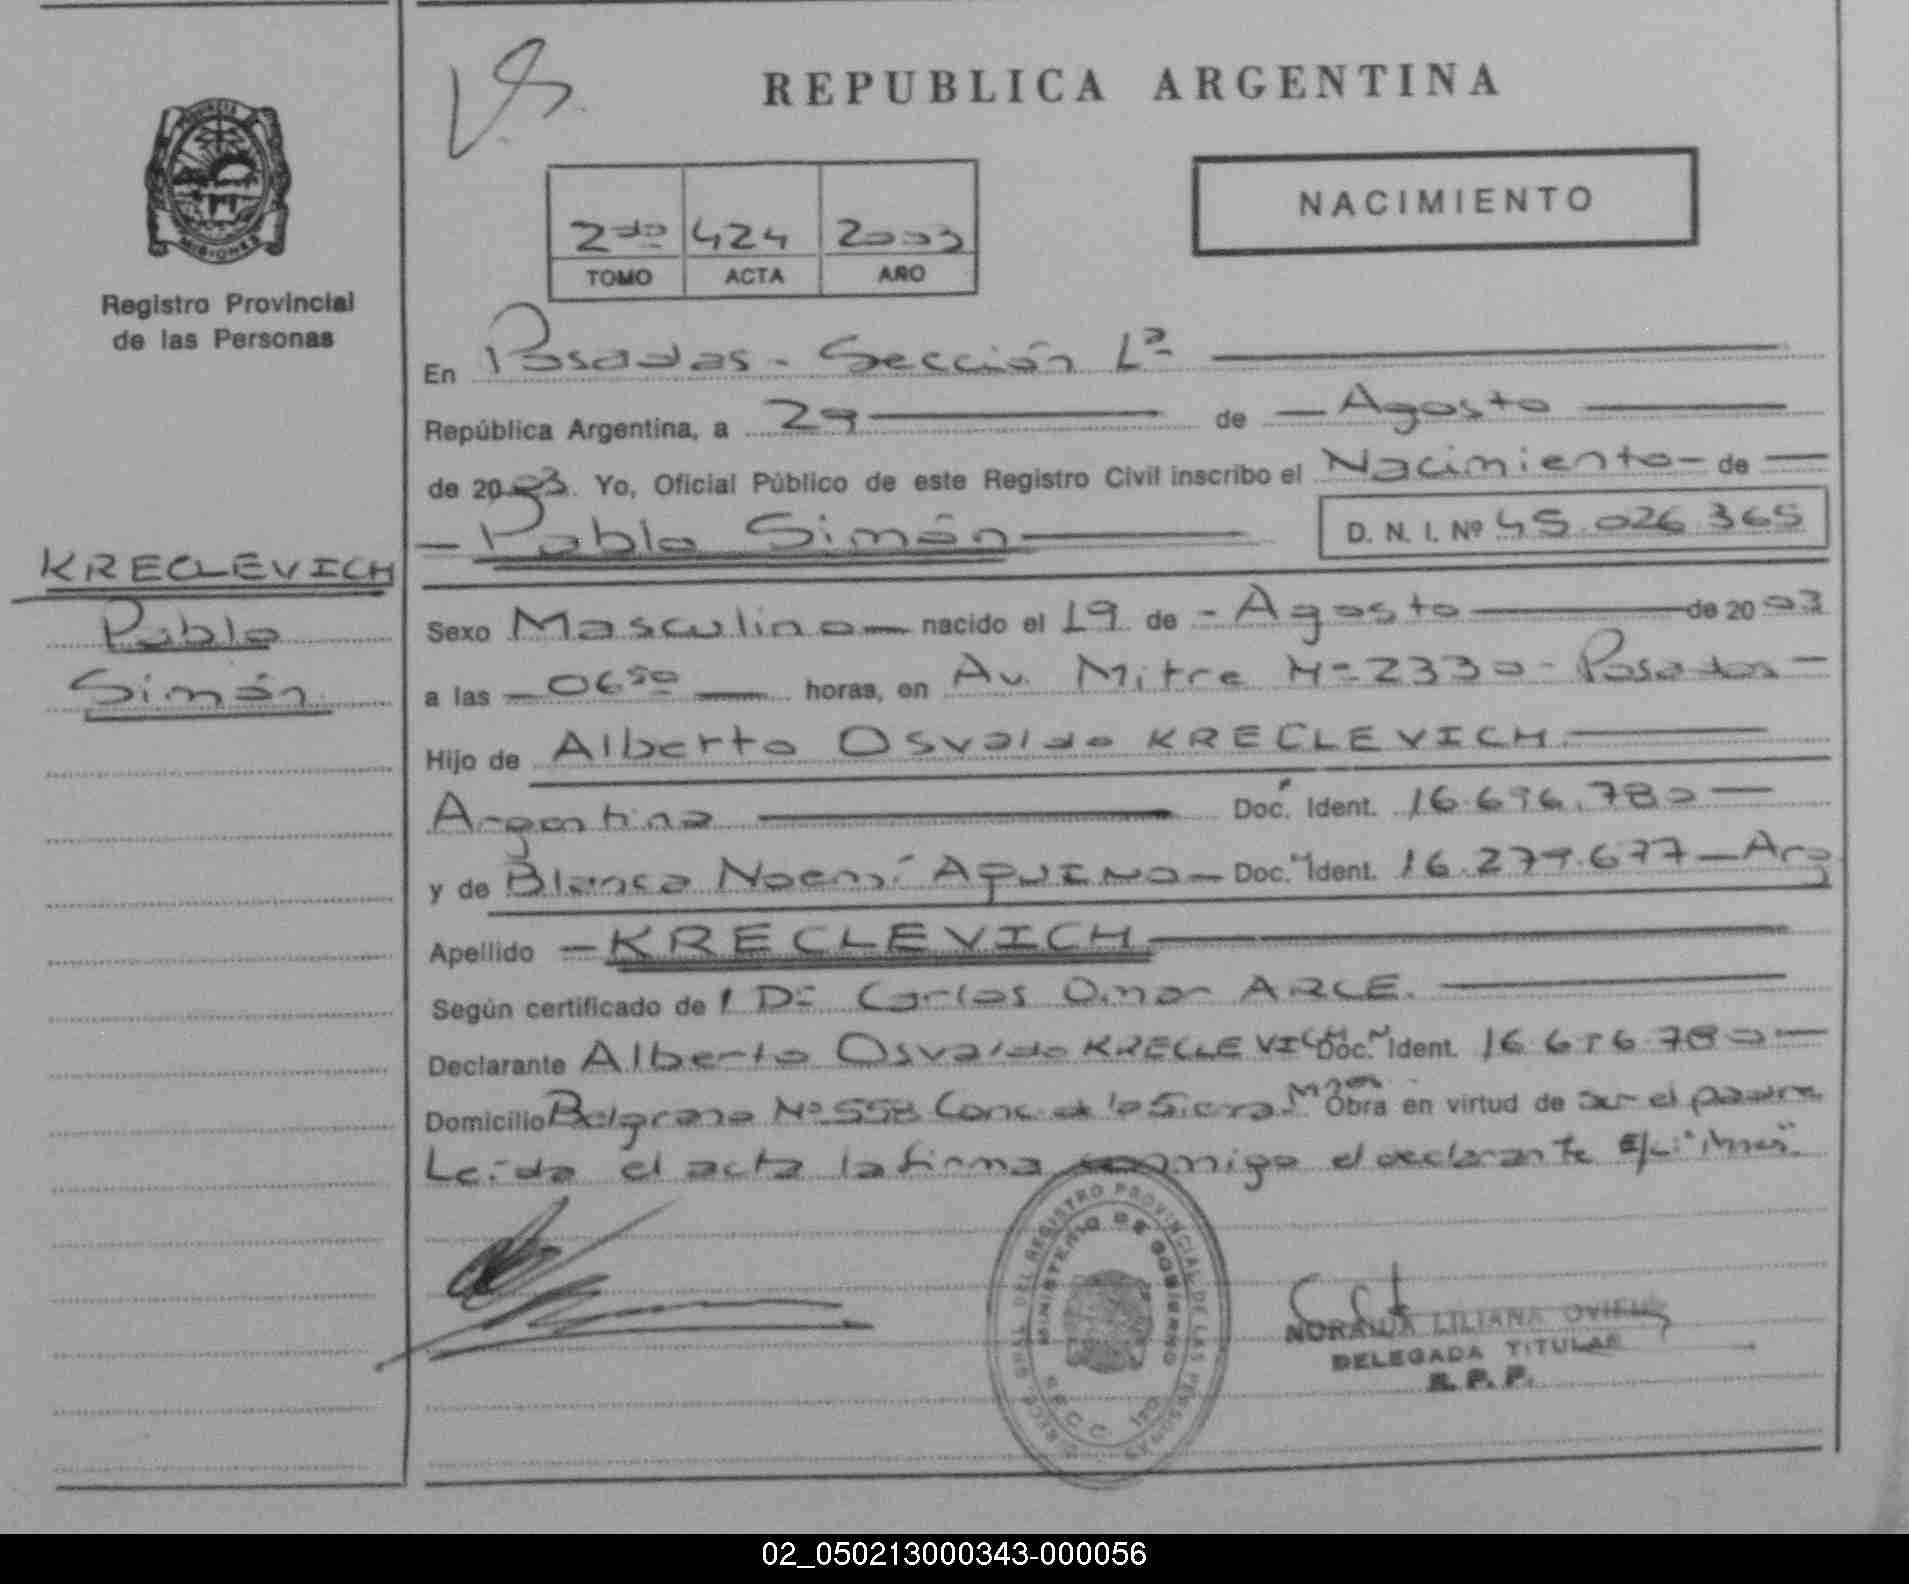 REPUBLICA ARGENTINA
PROVINCIA DE
MISIONES
Registro Provincial
de las Personas
2do 424 2003
TOMO ACTA AÑO
NACIMIENTO
En Posadas - Sección 1ª
República Argentina, a 29 de Agosto
de 2003. Yo, Oficial Público de este Registro Civil inscribo el Nacimiento de
Pablo Simón D. N. I. Nº 45.026.365
KRECLEVICH
Pablo
Simón
Sexo Masculino nacido el 19 de Agosto de 2003
a las 06 50 horas, en Av. Mitre Nº 2330 - Posadas
Hijo de Alberto Osvaldo KRECLEVICH
Argentina Doc. Ident. 16.696.780
y de Blanca Noemí AQUINO Doc. Ident. 16.279.677 Arg
Apellido KRECLEVICH
Según certificado de Dr Carlos Omar ARCE.
Declarante Alberto Osvaldo KRECLEVICH Doc. Ident. 16.696.780
Domicilio Belgrano Nº 558 Conc de la Sierra Mnes Obra en virtud de ser el padre
Leída el acta la firma conmigo el declarante
REGISTRO PROVINCIAL DE LAS PERSONAS
MINISTERIO DE GOBIERNO
LILIANA
DELEGADA TITULAR
R. P. P.
02_050213000343-000056